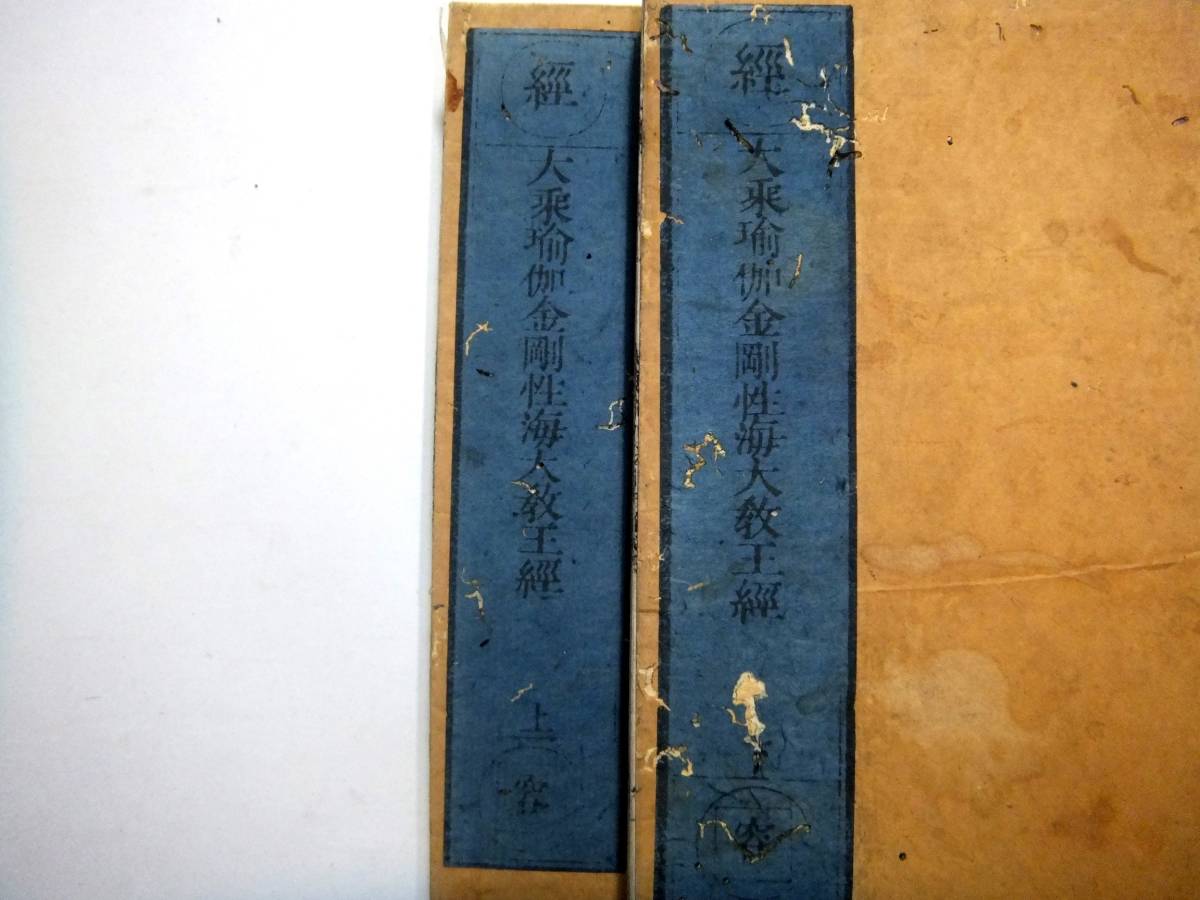 經
大乘瑜伽金剛性海大教王經
上
容
經
大乘瑜伽金剛性海大教王經
容